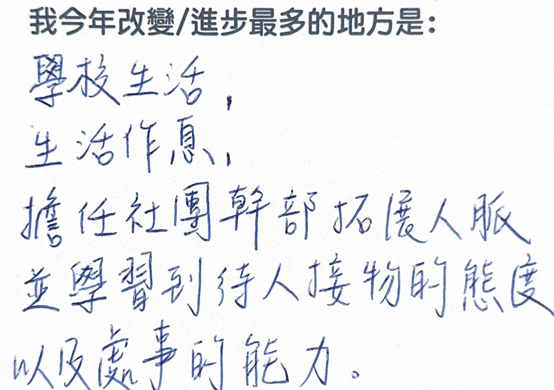 我今年改變/進步最多的地方是:
學校生活,
生活作息,
擔任社團幹部拓展人脈
並學習到待人接物的態度
以及處事的能力。